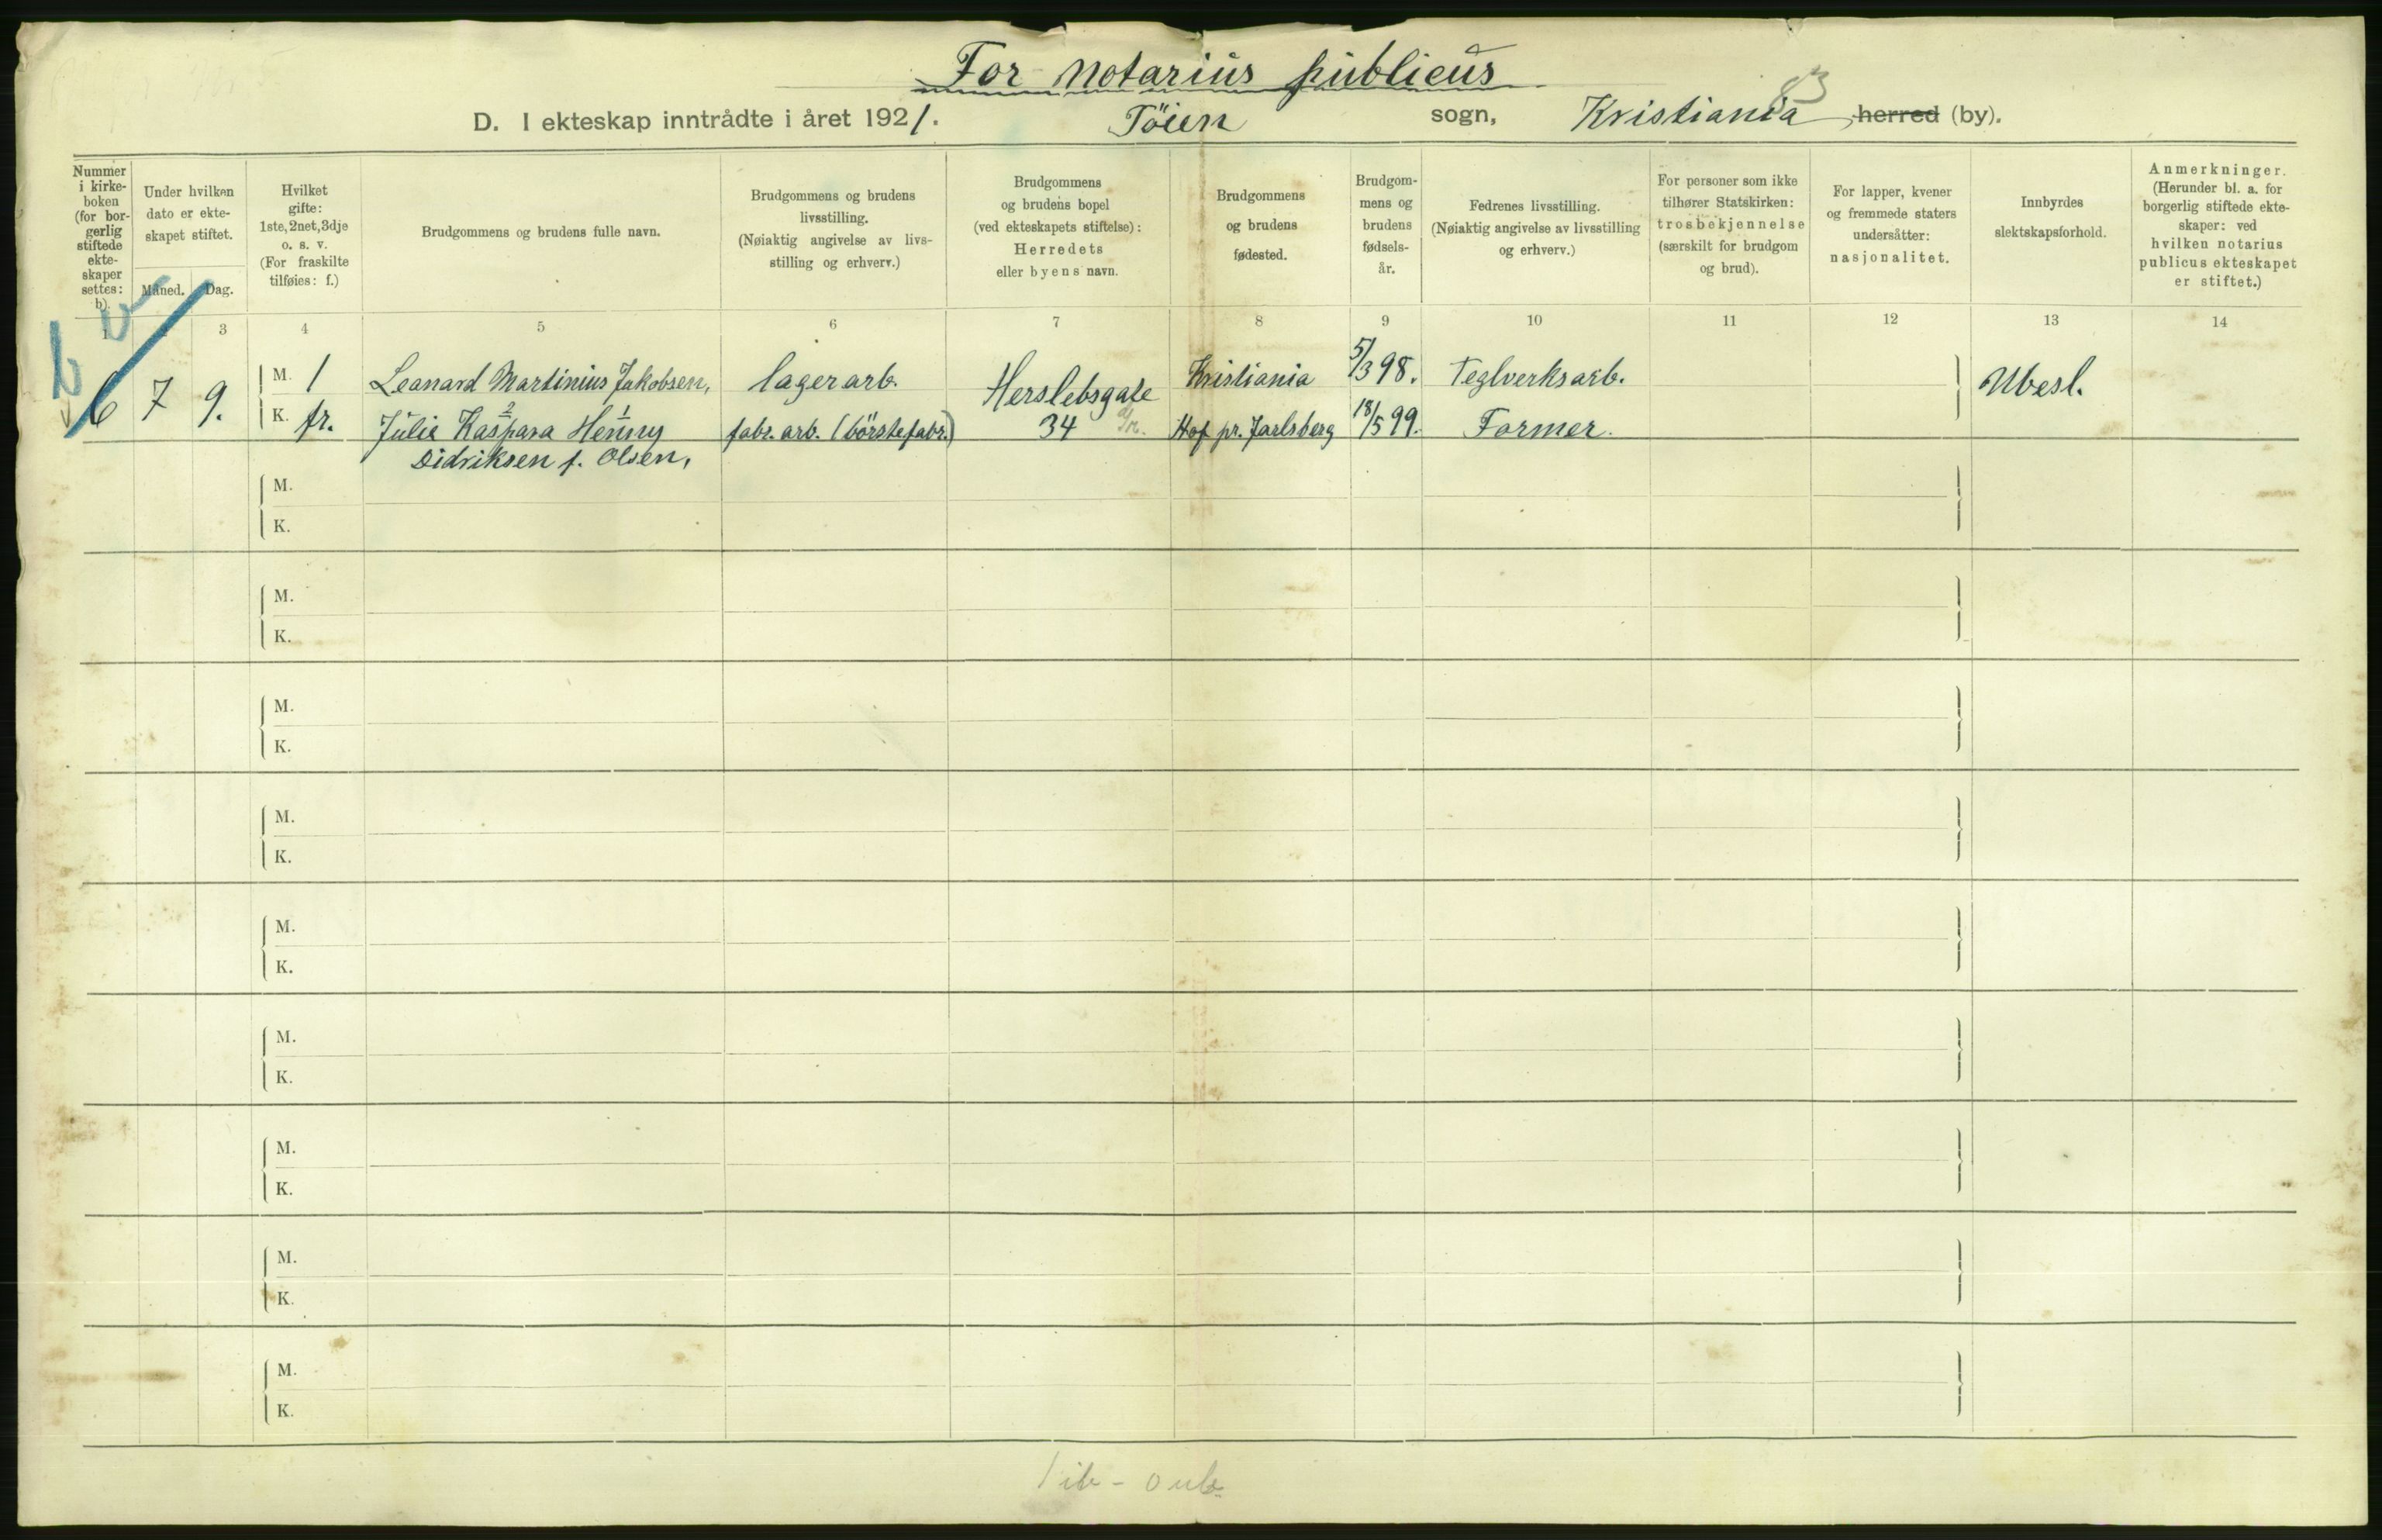 For notarius publicus
83
D. I ekteskap inntrådte i året 1921. Töien sogn, Kristiania herred (by).
Nummer
i kirke-
boken
(for bor-
gerlig
stiftede
ekte-
skaper
settes:
b).
Under hvilken
dato er ekte-
skapet stiftet.
Måned. Dag.
Hvilket
gifte:
1ste, 2net, 3dje
o. s. v.
(For fraskilte
tilføies: f.)
Brudgommens og brudens fulle navn.
Brudgommens og brudens
livsstilling.
(Nøiaktig angivelse av livs-
stilling og erhverv.)
Brudgommens
og brudens bopel
(ved ekteskapets stiftelse):
Herredets
eller byens navn.
Brudgommens
og brudens
fødested.
Brudgom-
mens og
brudens
fødsels-
år.
Fedrenes livsstilling.
(Nøiaktig angivelse av livsstilling
og erhverv.)
For personer som ikke
tilhører Statskirken:
trosbekjennelse
(særskilt for brudgom
og brud).
For lapper, kvener
og fremmede staters
undersåtter:
nasjonalitet.
Innbyrdes
slektskapsforhold.
Anmerkninger.
(Herunder bl. a. for
borgerlig stiftede ekte-
skaper: ved
hvilken notarius
publicus ekteskapet
er stiftet.)
1 3 4 5 6 7 8 9 10 11 12 13 14
b
6 7 9. M. 1 Leanard Martinius Jakobsen, lagerarb. Herslebsgate Kristiania 5/3 98. Teglverksarb. Ubesl.
K. fr. Julie Kaspara Henny fabr. arb. (börstefabr.) 34 Hof pr. Jarlsberg 18/5 99. Former.
2 1
Didriksen f. Olsen,
M.
K.
M.
K.
M.
K.
M.
K.
M.
K.
M.
K.
M.
K.
M.
K.
M.
K.
1 ib - 0 ub